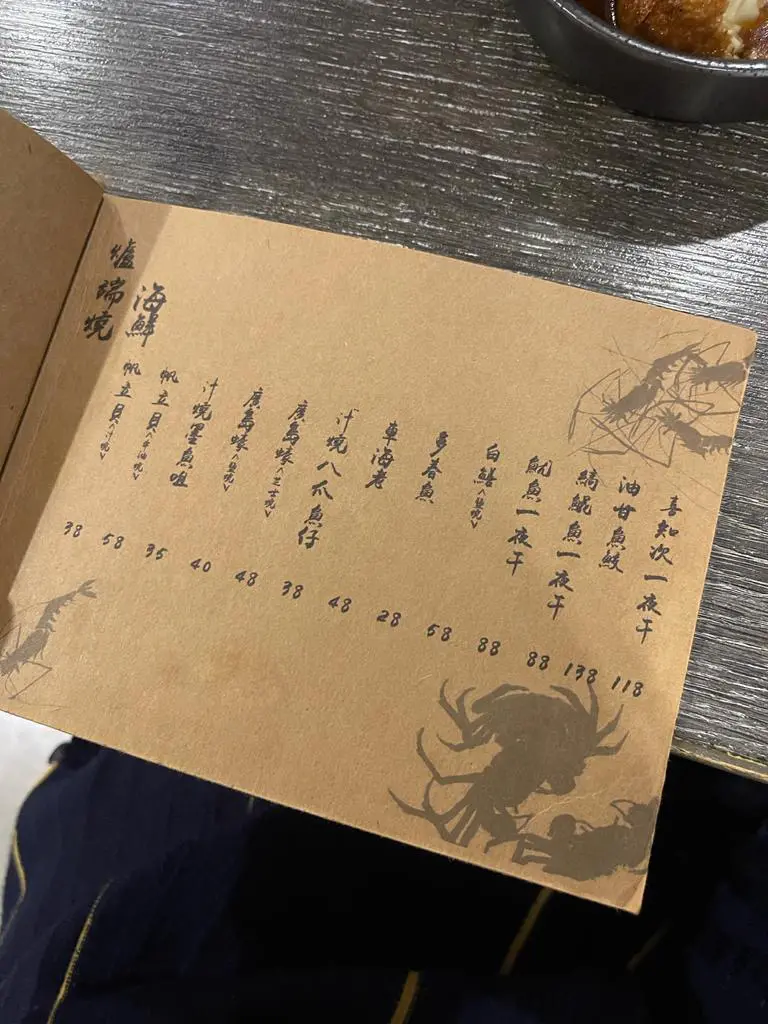 爐端燒
海鮮
帆立貝<汁燒> 38
帆立貝<牛油燒> 58
汁燒墨魚咀 35
廣島蠔<塩燒> 40
廣島蠔<芝士燒> 48
汁燒八爪魚仔 38
車海老 48
多春魚 28
白鱔<塩燒> 58
魷魚一夜干 88
縞鯤魚一夜干 88
油甘魚鮫 138
喜知次一夜干 118